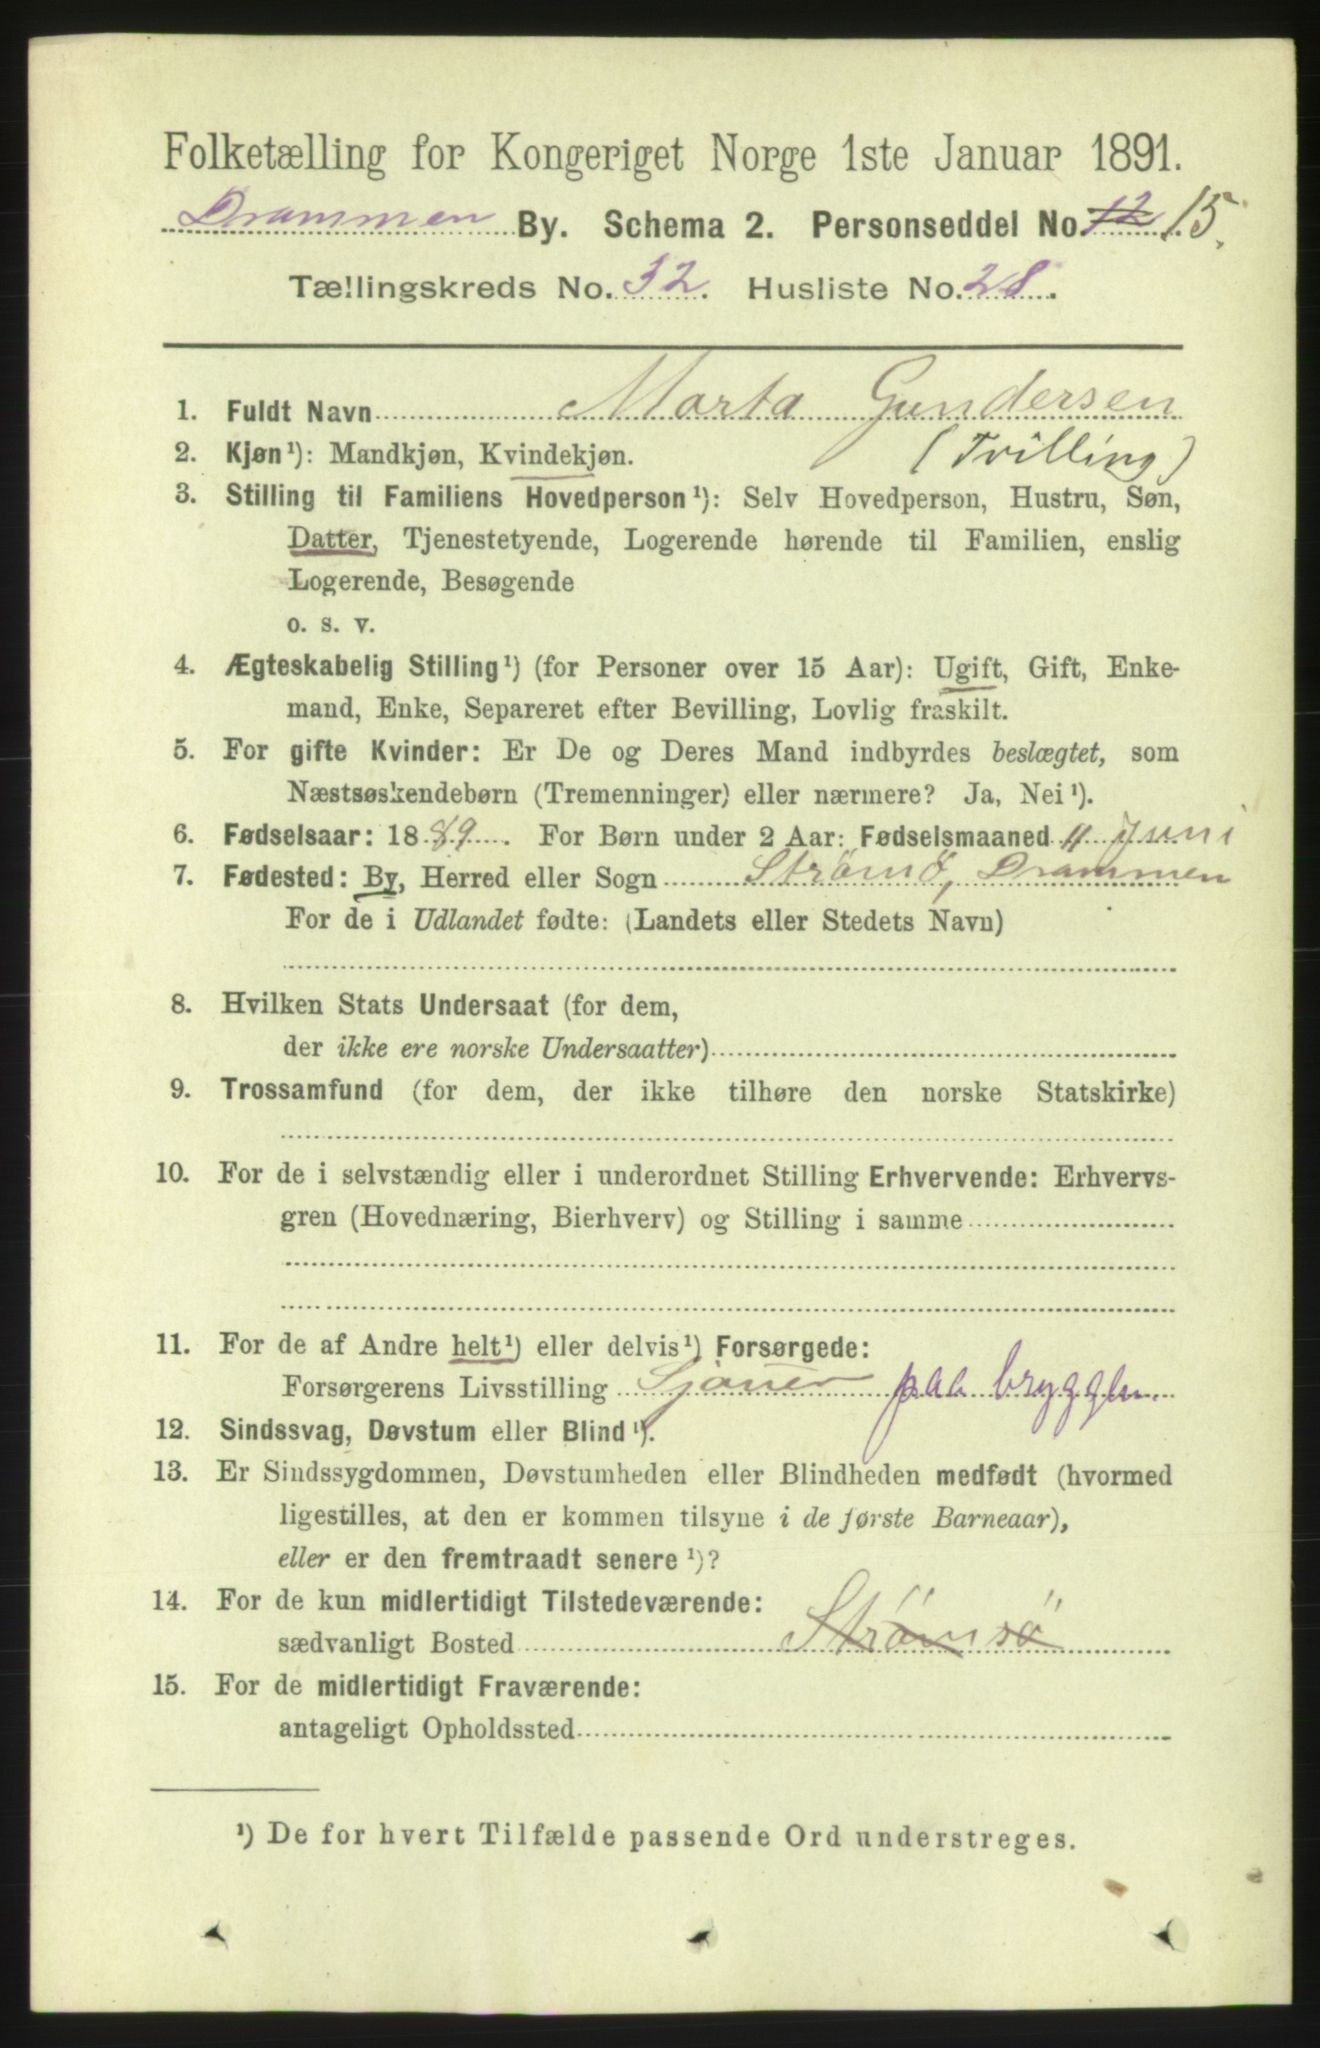 Folketælling for Kongeriget Norge 1ste Januar 1891.
Drammen By. Schema 2. Personseddel No. 12 15.
Tællingskreds No. 32. Husliste No. 28.
1. Fuldt Navn Marta Gundersen
2. Kjøn¹): Mandkjøn, Kvindekjøn. (Tvilling)
3. Stilling til Familiens Hovedperson¹): Selv Hovedperson, Hustru, Søn,
Datter, Tjenestetyende, Logerende hørende til Familien, enslig
Logerende, Besøgende
o. s. v.
4. Ægteskabelig Stilling¹) (for Personer over 15 Aar): Ugift, Gift, Enke-
mand, Enke, Separeret efter Bevilling, Lovlig fraskilt.
5. For gifte Kvinder: Er De og Deres Mand indbyrdes beslægtet, som
Næstsøskendebørn (Tremenninger) eller nærmere? Ja, Nei¹).
6. Fødselsaar: 1889. For Børn under 2 Aar: Fødselsmaaned 11 Juni
7. Fødested: By, Herred eller Sogn Strömsö, Drammen
For de i Udlandet fødte: (Landets eller Stedets Navn)
8. Hvilken Stats Undersaat (for dem,
der ikke ere norske Undersaatter)
9. Trossamfund (for dem, der ikke tilhøre den norske Statskirke)
10. For de i selvstændig eller i underordnet Stilling Erhvervende: Erhvervs-
gren (Hovednæring, Bierhverv) og Stilling i samme
11. For de af Andre helt¹) eller delvis¹) Forsørgede:
Forsørgerens Livsstilling Sjauer paa bryggen.
12. Sindssvag, Døvstum eller Blind¹).
13. Er Sindssygdommen, Døvstumheden eller Blindheden medfødt (hvormed
ligestilles, at den er kommen tilsyne i de første Barneaar),
eller er den fremtraadt senere¹)?
14. For de kun midlertidigt Tilstedeværende:
sædvanligt Bosted Strömsö
15. For de midlertidigt Fraværende:
antageligt Opholdssted
¹) De for hvert Tilfælde passende Ord understreges.